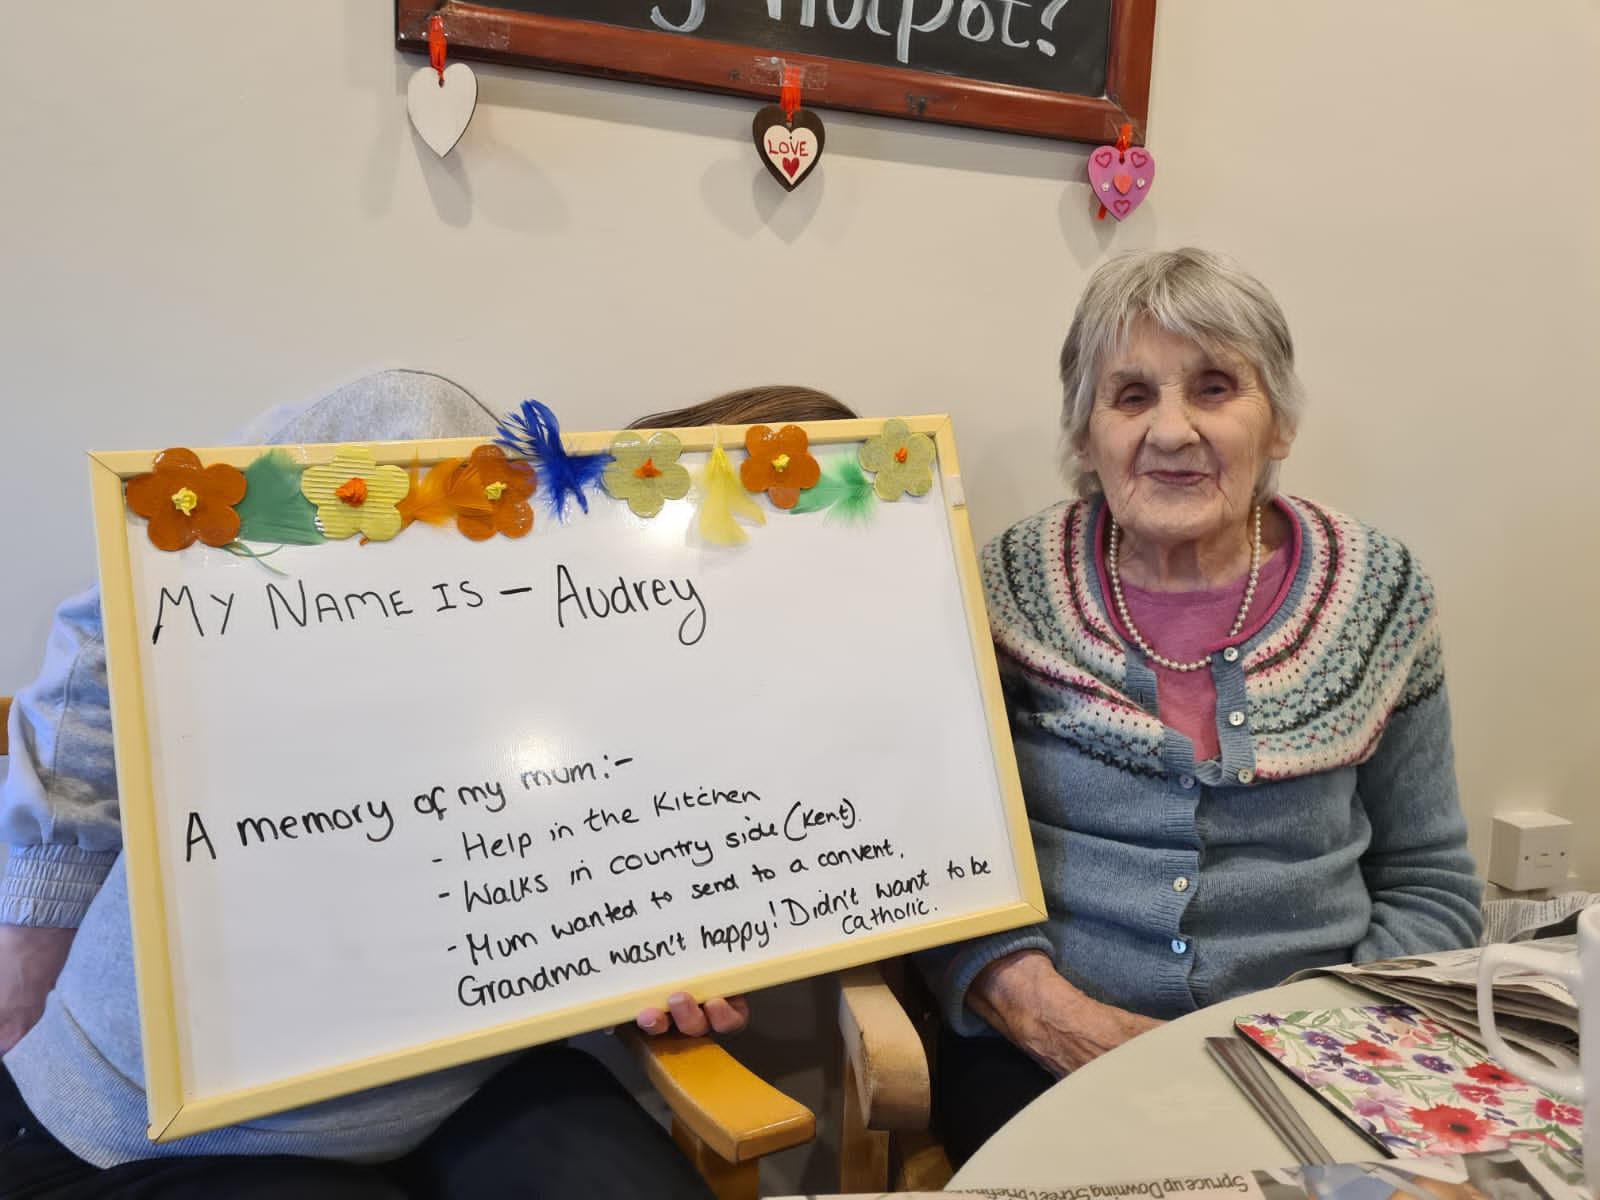 Hotpot?
LOVE
MY NAME IS - Audrey
A memory of my mum:-
- Help in the Kitchen
- Walks in country side (Kent).
- Mum wanted to send to a convent.
Grandma wasn't happy! Didn't want to be
Catholic.
Spruce up Downing Street briefing